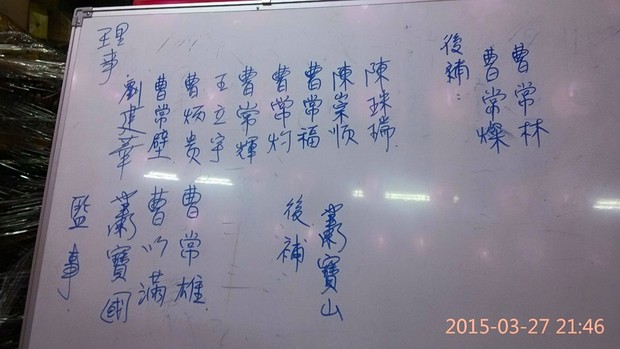 理事
劉建華
曹常壁
曹炳贵
王立宇
曹常輝
曹常灼
曹常福
陳崇順
陳珠瑞
後補：
曹常燦
曹常林
監事
蕭寶國
曹以滿
曹常雄
後補
蕭寶山
2015-03-27 21:46